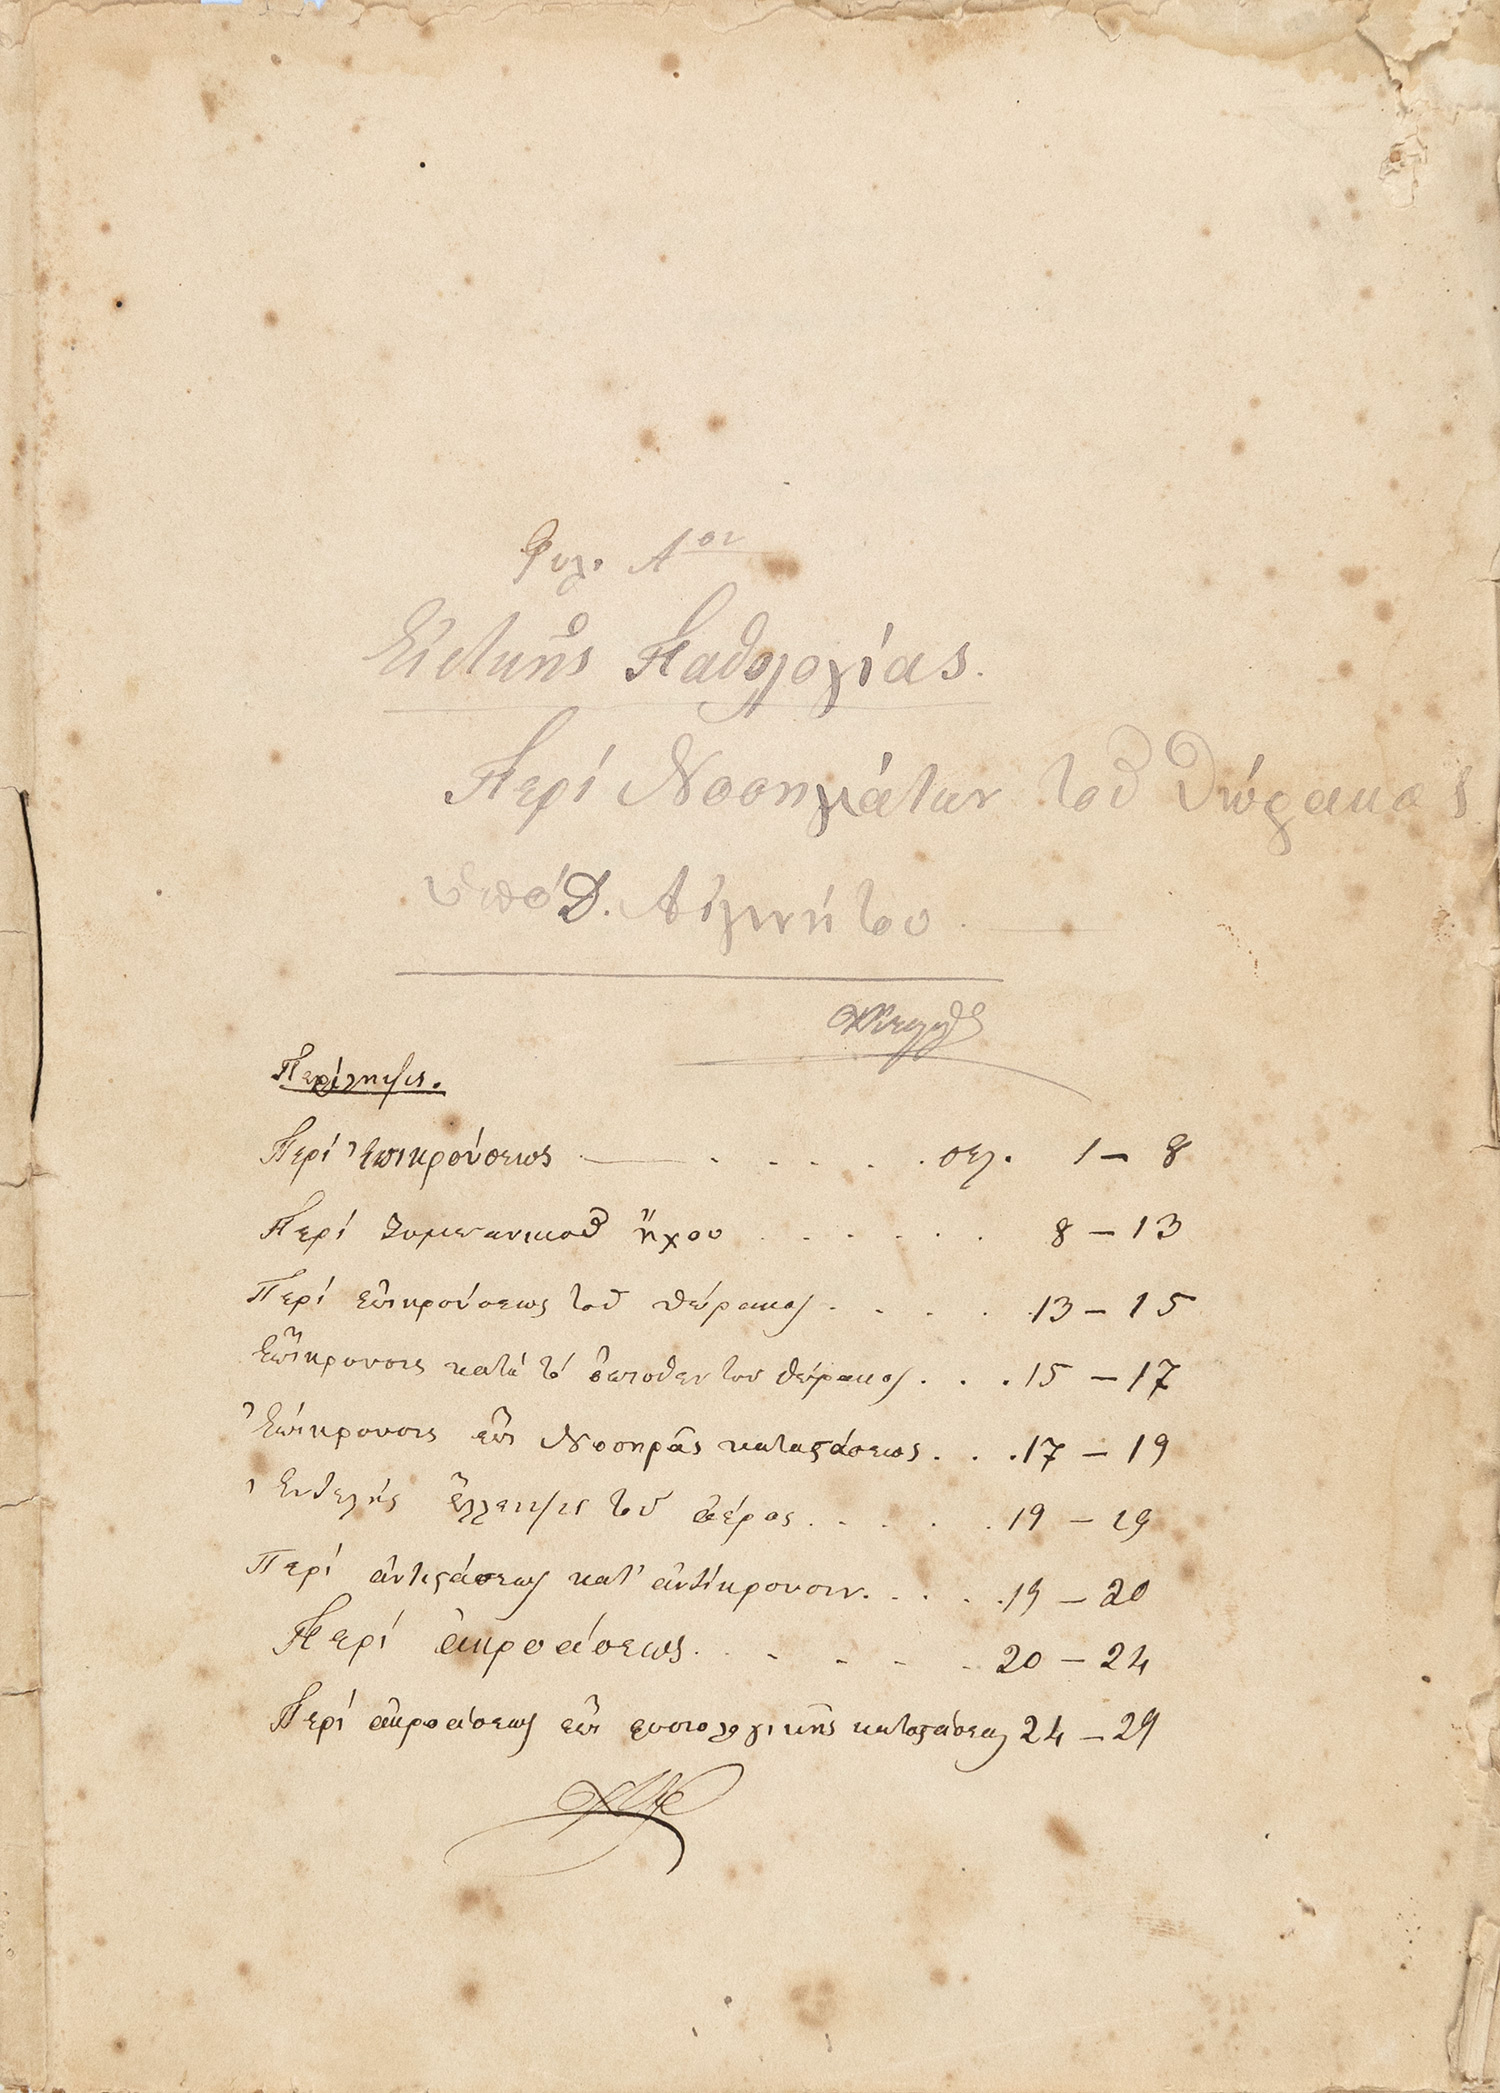 Φυλ. Α^ον
Εἰδικῆς Παθολογίας.
Περί Νοσημάτων τοῦ θώρακος
ὑπό Δ. Αἰγινήτου.
Περίληψις.
Περί Ἐπικρούσεως . . . . . σελ. 1 – 8
Περί τυμπανικοῦ ἤχου . . . . . . 8 – 13
Περί ἐπικρούσεως τοῦ θώρακος . . . . 13 – 15
Ἐπίκρουσις κατά τό ὄπισθεν του θώρακος . . . 15 – 17
Ἐπίκρουσις ἐπί Νοσηρᾶς καταςάσεως . . . 17 – 19
Ἐντελής ἔλλειψις τοῦ ἀέρος . . . . . 19 – 19
Περί ἀντιςάσεως κατ' ἀντίκρουσιν . . . . 19 – 20
Περί ἀκροάσεως . . . . . 20 – 24
Περί ἀκροάσεως ἐπί φυσιολογικῆς καταςάσεως 24 – 29